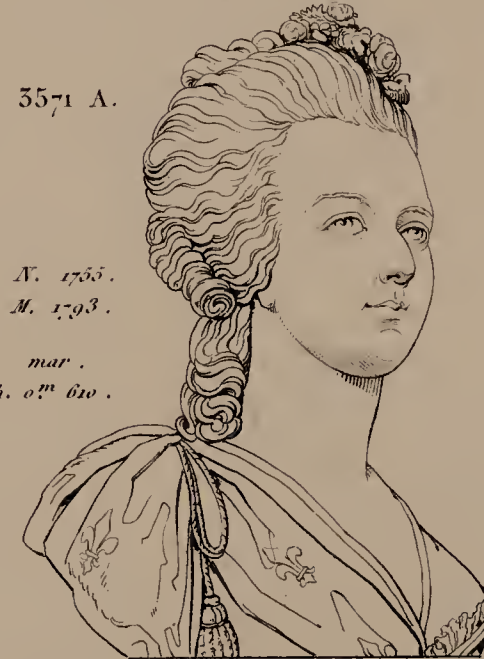 3571 A.
N. 1755.
M. 1793.
mar.
h. 0.m 610.